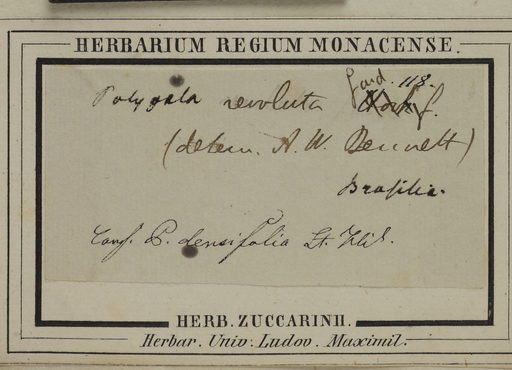 HERBARIUM REGIUM MONACENSE.
Polygala revoluta Gard. 118.
(determ. A. W. Bennett)
Brasilia.
Conf. P. densifolia St. Hil.
HERB. ZUCCARINII.
Herbar. Univ. Ludov. Maximil.